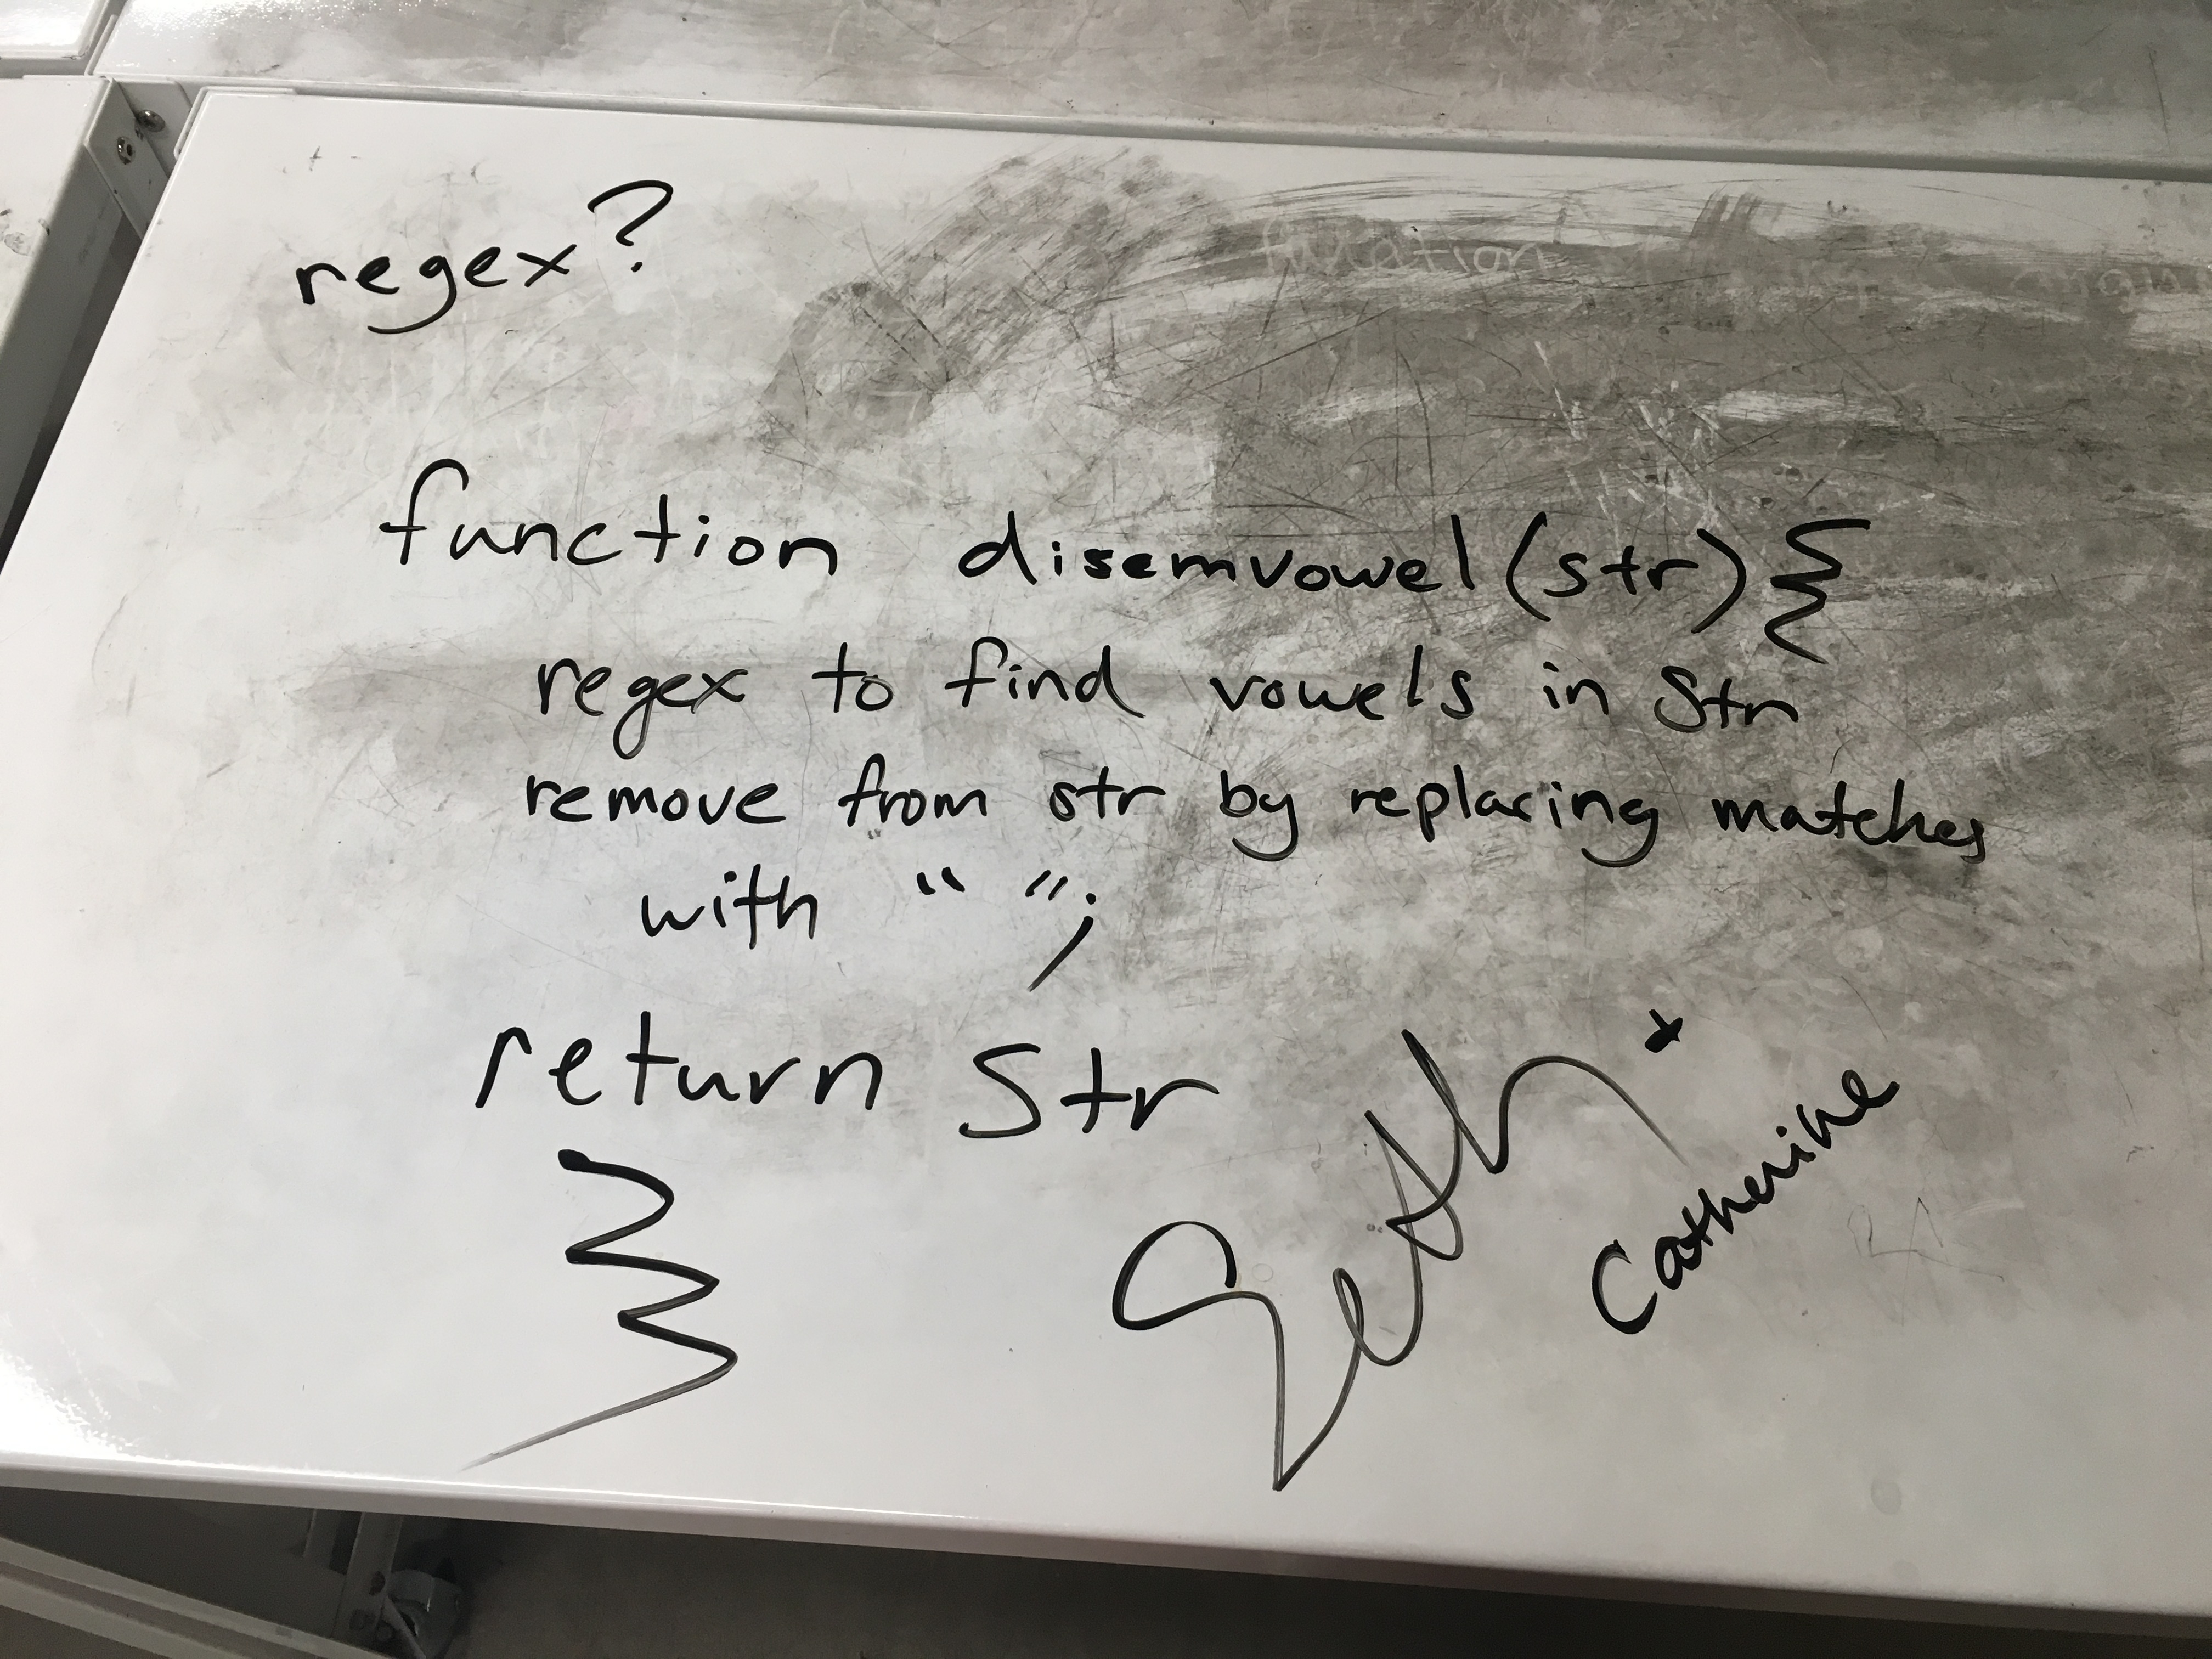 regex?
function
function disemvowel(str){
regex to find vowels in str
remove from str by replacing matches
with “ ”;
return str
}
Seth +
Catherine